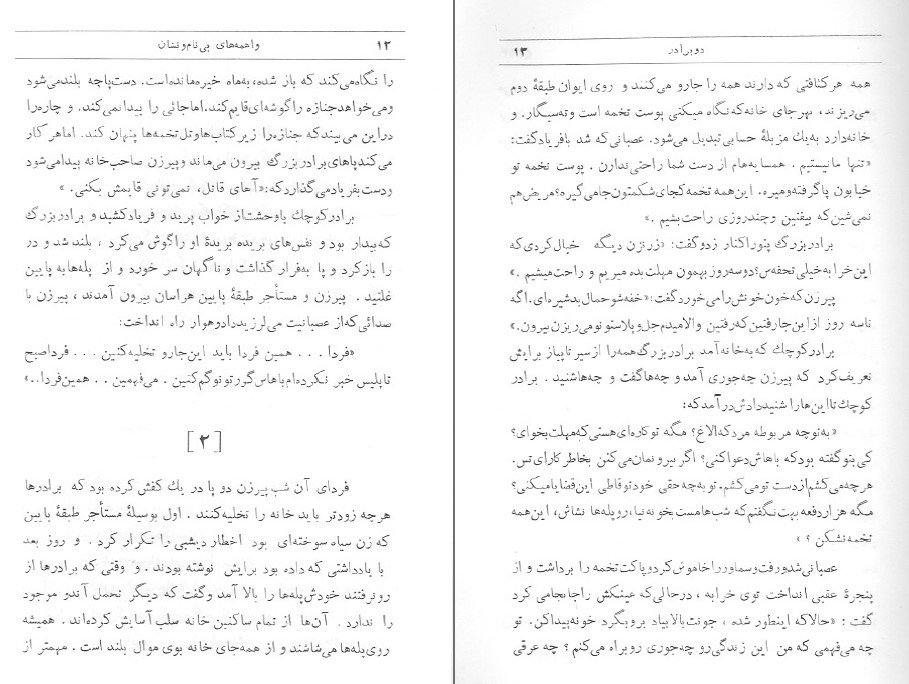 ۱۲ واهمه‌های بی‌نام‌ونشان
را نگاه می‌کند که باز شده، به‌ماه خیره‌مانده‌است. دست‌پاچه بلندمی‌شود
ومی‌خواهدجنازه راگوشه‌ای‌قایم‌کند.اماجائی را پیدانمی‌کند. و چاره‌را
دراین می‌بیندکه جنازه‌را زیرکتاب‌هاوتل‌تخمه‌ها پنهان کند. اماهرکار
می‌کندپاهای‌برادربزرگ بیرون می‌ماند وپیرزن صاحب‌خانه پیدامی‌شود
ودست‌بفریادمی‌گذاردکه:«آهای قاتل، نمی‌تونی قایمش بکنی. »
برادرکوچك باوحشت‌از خواب پرید و فریادکشید و برادربزرگ
که‌بیدار بود و نفس‌های بریده بریدهٔ او راگوش می‌کرد ، بلند شد و در
را بازکرد و پا به‌فرار گذاشت و ناگهان سر خورد و از پله‌ها به پایین
غلتید . پیرزن و مستأجر طبقهٔ پایین هراسان بیرون آمدند ، پیرزن با
صدائی‌که‌از عصبانیت می‌لرزید‌دادوهوار راه انداخت:
«فردا ... همین فردا باید این‌جارو تخلیه‌کنین ... فرداصبح
تاپلیس خبر نکرده‌ام‌باهاس‌گورتونوگم‌کنین . می‌فهمین .. همین‌فردا..»
[۲]
فردای آن شب پیرزن دو پا در یك کفش کرده بود که برادرها
هرچه زودتر باید خانه را تخلیه‌کنند . اول بوسیلهٔ مستأجر طبقهٔ پایین
که زن سیاه سوخته‌ای بود اخطار دیشبی را تکرار کرد . و روز بعد
با یادداشتی که داده بود برایش نوشته بودند . و وقتی که برادرها از
رو نرفتند خودش پله‌ها را بالا آمد وگفت که دیگر تحمل آندو موجود
را ندارد . آن‌ها از تمام ساکنین خانه سلب آسایش کرده‌اند . همیشه
روی‌پله‌ها می‌شاشند و از همه‌جای خانه بوی موال بلند است . مهمتر از
دوبرادر ۱۳
همه هرکثافتی که دارند همه را جارو می‌کنند و روی ایوان طبقهٔ دوم
می‌ریزند، بهرجای خانه‌که‌نگاه میکنی پوست تخمه است وته‌سیگار. و
خانه‌دارد به‌یك مزبلهٔ حسابی‌تبدیل می‌شود. عصبانی‌که شد بافریادگفت:
«تنها مانیستیم . همسایه‌هام از دست شما راحتی‌ندارن . پوست تخمه تو
خیابون پاگرفته‌ومیره. این‌همه تخمه‌کجای‌شکمتون‌جامی‌گیره؟مریض‌هم
نمی‌شین‌که بیفتین وچندروزی راحت‌بشیم .»
برادربزرگ پتوراکنار زدوگفت: «زرنزن دیگه خیال‌کردی‌که
این‌خرابه‌خیلی‌تحفه‌س؟دوسه‌روزبهمون مهلت‌بده‌میریم و راحت‌میشیم .»
پیرزن‌که‌خون‌خونش‌رامی‌خوردگفت: «خفه‌شوحمال‌بدشیره‌ای.اگه
تاسه روز ازاین‌جارفتین‌که‌رفتین والامیدم‌جل‌وپلاستونومی‌ریزن‌بیرون.»
برادرکوچك که‌به‌خانه‌آمد برادربزرگ همه‌را ازسیرتاپیاز برایش
تعریف‌کرد که پیرزن چه‌جوری آمدو چه‌هاگفت و چه‌هاشنید . برادر
کوچك‌تااین‌هاراشنیددادش‌درآمدکه:
«به‌توچه مربوطه مردکه‌الاغ؟ مگه توکاره‌ای‌هستی‌که‌مهلت‌بخوای؟
کی‌بتوگفته بودکه باهاش‌دعواکنی؟ اگر بیرونمان‌می‌کنن بخاطرکارای‌تس.
هرچه‌می‌کشم‌ازدست تومی‌کشم. توبه‌چه‌حقی خودتوقاطی این‌قضایامیکنی؟
مگه هزاردفعه بهت نگفتم‌که شب‌هامست‌بخونه‌نیا، روپله‌ها نشاش، این‌همه
تخمه‌نشکن ؟ »
عصبانی‌شدورفت‌وسماورراخاموش‌کردوپاکت‌تخمه را برداشت و از
پنجرهٔ عقبی انداخت توی خرابه ، درحالی‌که عینکش راجابجامی کرد
گفت : «حالاکه اینطور شده ، جونت‌بالابیاد بروبگرد خونه‌پیداکن. تو
چه می‌فهمی که من این زندگی‌رو چه‌جوری روبراه می‌کنم ؟ چه عرقی